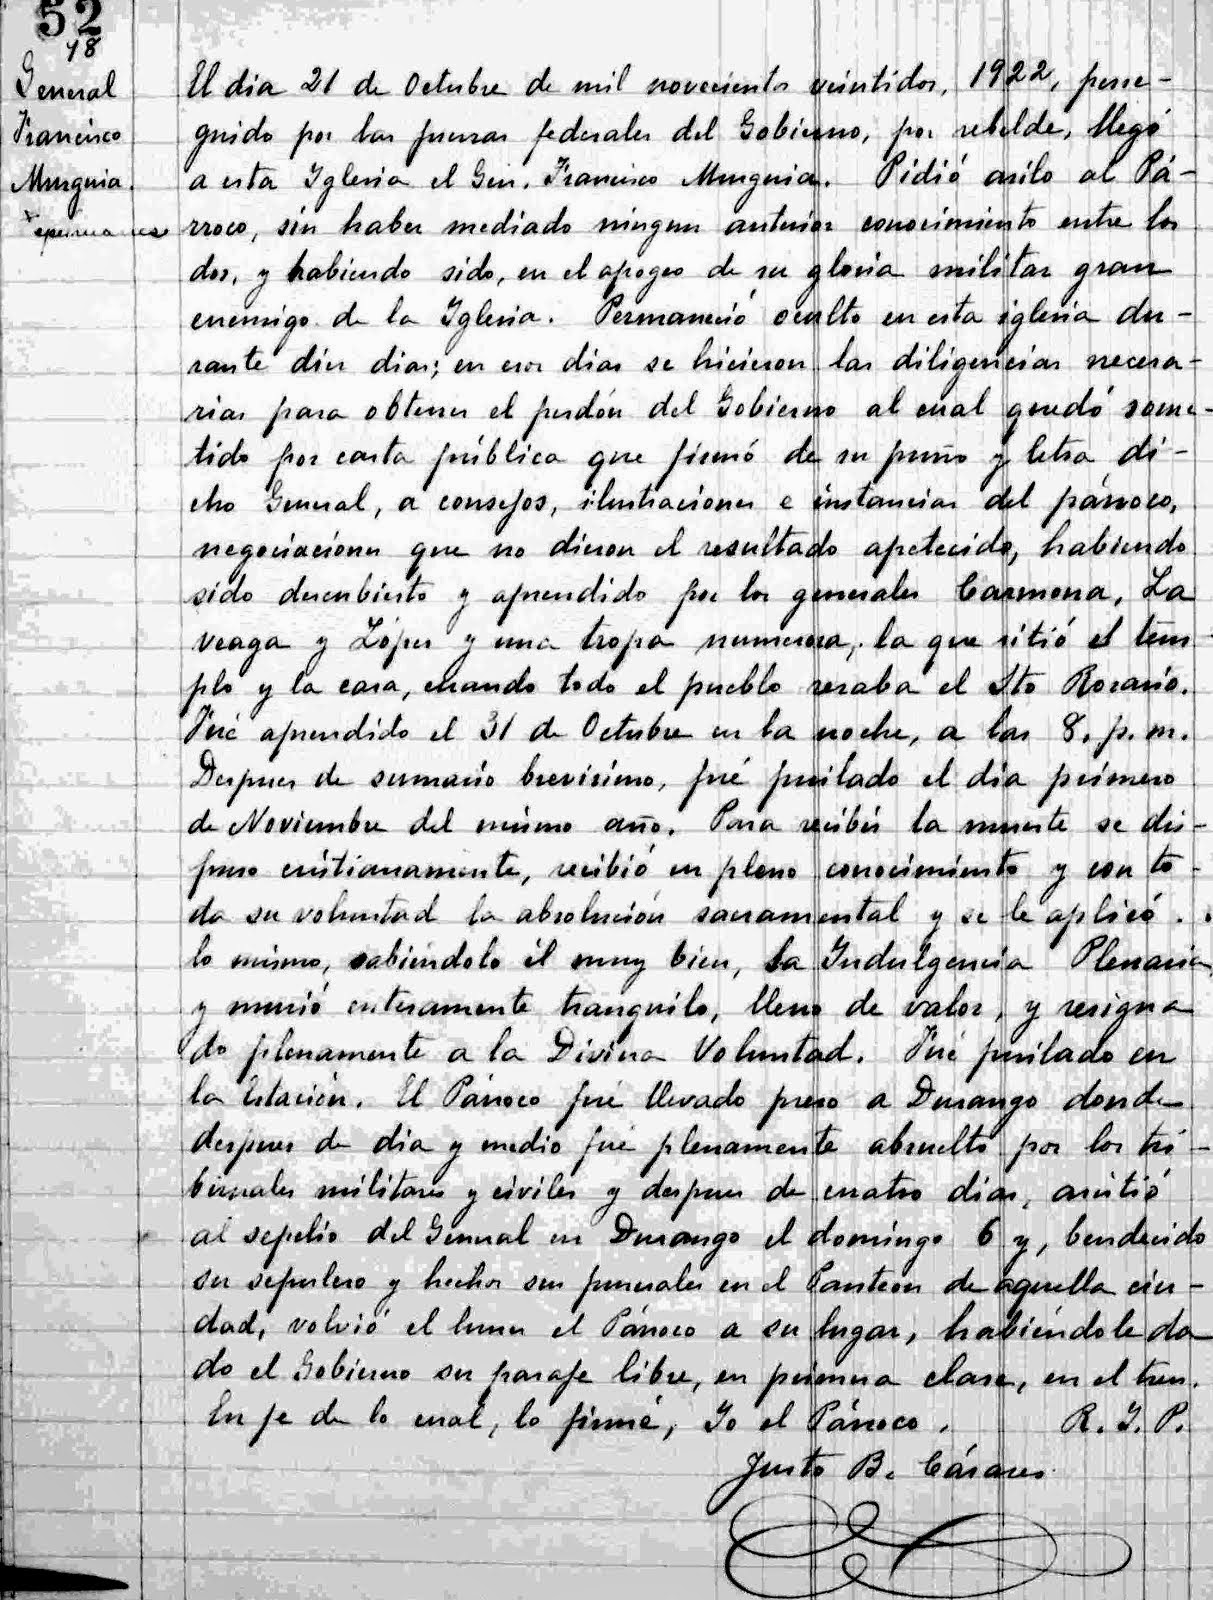 52
18
General
Francisco
Murguia.
Tepehuanes
El dia 21 de Octubre de mil novecientos veintidos, 1922, perse-
guido por las fuerzas federales del Gobierno, por rebelde, llegó
a esta Iglesia el Gen. Francisco Murguia. Pidió asilo al Pá-
rroco, sin haber mediado ningun anterior conocimiento entre los
dos, y habiendo sido, en el apogeo de su gloria militar gran
enemigo de la Iglesia. Permaneció oculto en esta iglesia du-
rante diez dias; en esos dias se hicieron las diligencias necesa-
rias para obtener el perdón del Gobierno al cual quedó some-
tido por carta pública que firmó de su puño y letra di-
cho General, a consejos, ilustraciones e instancias del párroco,
negociaciones que no dieron el resultado apetecido, habiendo
sido descubierto y aprendido por los generales Carmona, La
veaga y López y una tropa numerosa, la que sitió el tem-
plo y la casa, cuando todo el pueblo rezaba el Sto Rosario.
Fué aprendido el 31 de Octubre en la noche, a las 8. p. m.
Despues de sumario brevisimo, fué fusilado el día primero
de Noviembre del mismo año. Para recibir la muerte se dis-
puso cristianamente, recibió en pleno conocimiento y con to-
da su voluntad la absolución sacramental y se le aplicó .
lo mismo, sabiéndolo él muy bien, la Indulgencia Plenaria,
y murió enteramente tranquilo, lleno de valor, y resigna
do plenamente a la Divina Voluntad. Fué fusilado en
la Estación. El Párroco fué llevado preso a Durango donde
despues de dia y medio fué plenamente absuelto por los tri-
bunales militares y civiles y despues de cuatro dias, asistió
al sepelio del General en Durango el domingo 6 y, bendecido
su sepulcro y hechos sus funerales en el Panteon de aquella ciu-
dad, volvió el lunes el Párroco a su lugar, habiéndole da
do el Gobierno su pasaje libre, en primera clase, en el tren.
En fe de lo cual, lo firmé, Yo el Párroco. R. I. P.
Justo B. Cázares